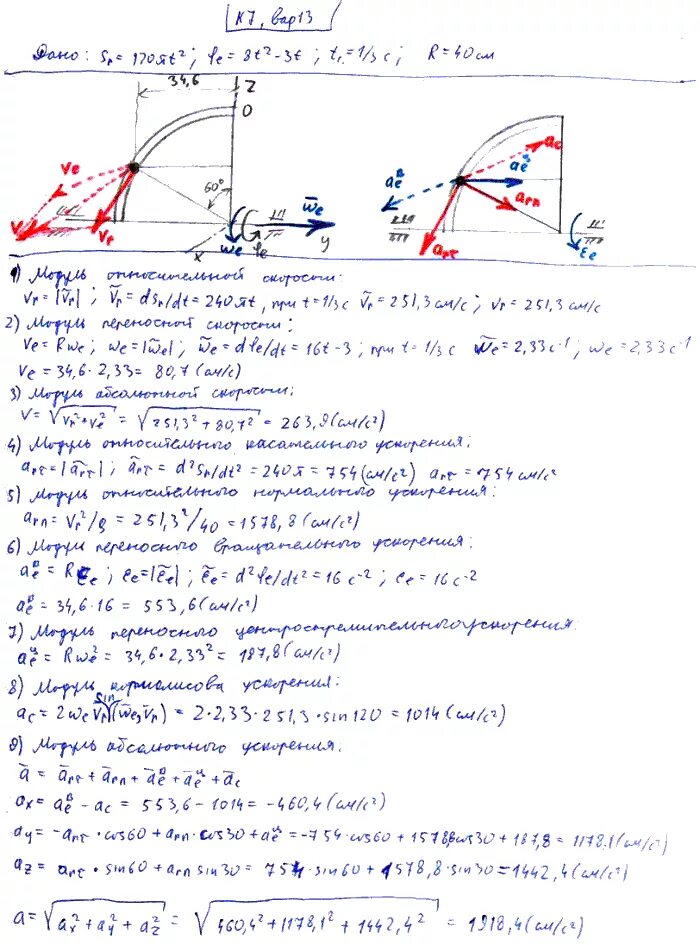 К7, вар13
Дано: Sr = 120πt²; φe = 8t² - 3t; t₁ = 1/3 с; R = 40см
34,6
Z
O
60°
Ve
V
Vr
ω̄e
ωe
φe
x
y
ac
aeᴮ
aeᵘ
arn
arτ
εe
1) Модуль относительной скорости:
Vr = |V̄r|; Ṽr = dSr/dt = 240πt, при t = 1/3 с Ṽr = 251,3 см/с; Vr = 251,3 см/с
2) Модуль переносной скорости:
Ve = Rωe; ωe = |ω̃e|; ω̃e = dφe/dt = 16t - 3; при t = 1/3 с ω̃e = 2,33 с⁻¹; ωe = 2,33 с⁻¹
Ve = 34,6 · 2,33 = 80,7 (см/с)
3) Модуль абсолютной скорости:
V = √(Vr² + Ve²) = √(251,3² + 80,7²) = 263,9 (см/с²)
4) Модуль относительного касательного ускорения:
arτ = |ãrτ|; ãrτ = d²Sr/dt² = 240π = 754 (см/с²) arτ = 754 см/с²
5) Модуль относительного нормального ускорения:
arn = Vr²/ρ = 251,3²/40 = 1578,8 (см/с²)
6) Модуль переносного вращательного ускорения:
aeᴮ = Rεe; εe = |ε̃e|; ε̃e = d²φe/dt² = 16 с⁻²; εe = 16 с⁻²
aeᴮ = 34,6 · 16 = 553,6 (см/с²)
7) Модуль переносного центростремительного ускорения:
aeᵘ = Rωe² = 34,6 · 2,33² = 187,8 (см/с²)
8) Модуль кориолисова ускорения:
ac = 2ωe Vr sin(ω̄e, V̄r) = 2 · 2,33 · 251,3 · sin120 = 1014 (см/с²)
9) Модуль абсолютного ускорения:
ā = ārτ + ārn + āeᴮ + āeᵘ + āc
ax = aeᴮ - ac = 553,6 - 1014 = -460,4 (см/с²)
ay = -arτ · cos60 + arn · cos30 + aeᵘ = -754 · cos60 + 1578,8cos30 + 187,8 = 1178,1 (см/с²)
az = arτ · sin60 + arn sin30 = 754 · sin60 + 1578,8 · sin30 = 1442,4 (см/с²)
a = √(ax² + ay² + az²) = √(460,4² + 1178,1² + 1442,4²) = 1918,4 (см/с²)